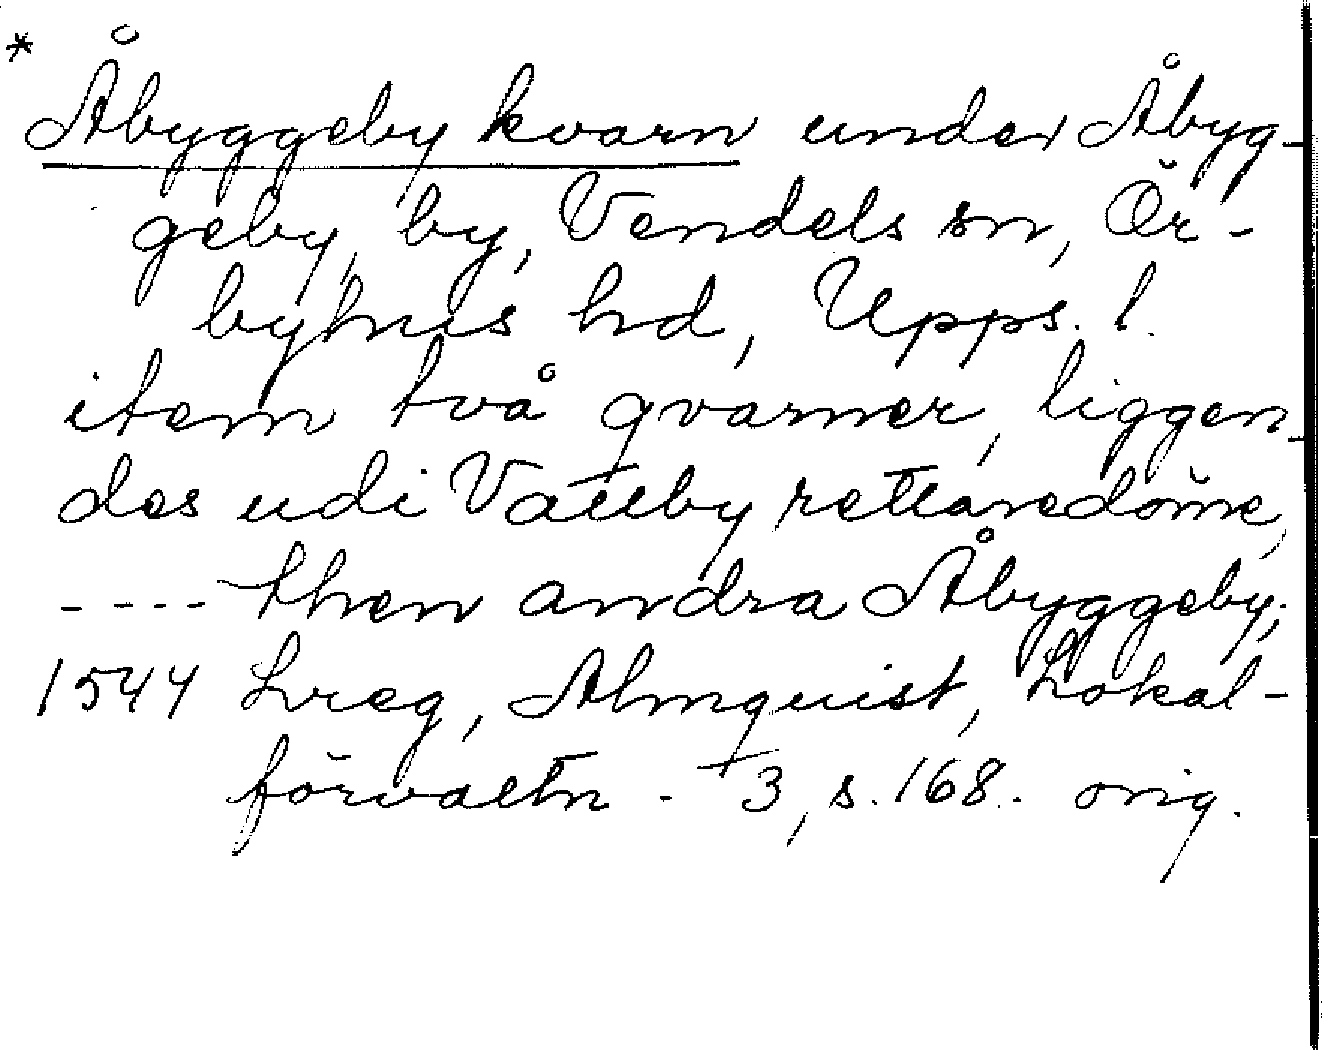 * Åbyggeby kvarn under Åbyg-
geby, by, Vendels sn, Ör-
byhus hd, Upps. l.
item två qvarner, liggen-
des udi Vattby rettaredöme,
---- then andra Åbyggeby;
1544 Lreg, Almquist, Lokal-
förvaltn. 3, s. 168. orig.